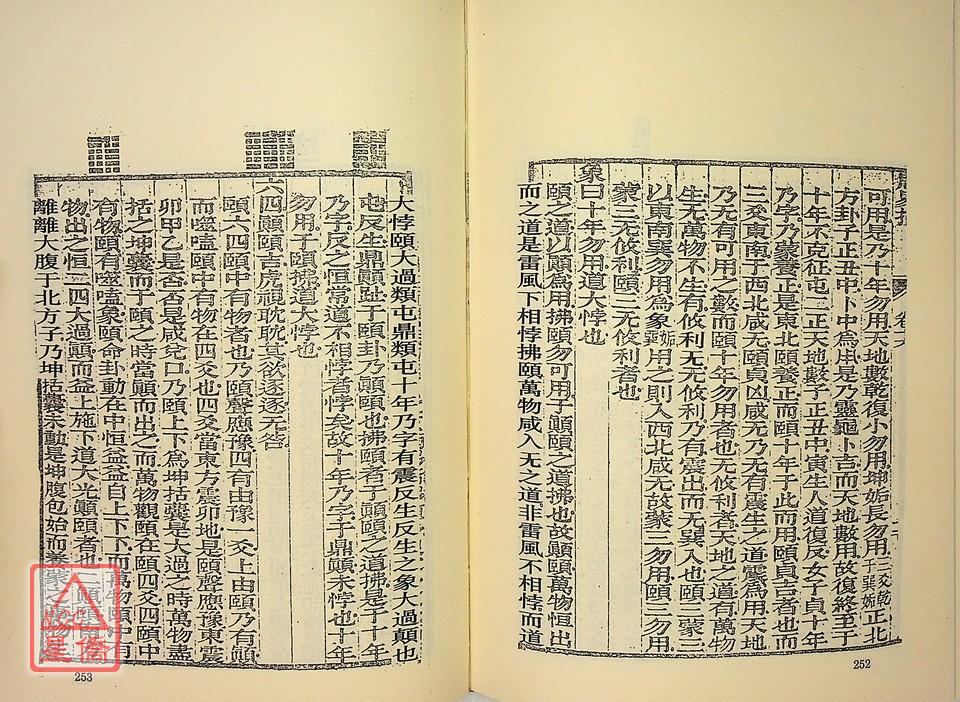 可用是乃十年勿用天地數乾復小勿用坤姤長勿用子巽姤正北
方卦子正丑中卜中為用是乃靈龜卜吉而天地數用故復終至子
十年不克征屯二正天地數子正丑中寅生人道復反女子貞十年
乃字乃蒙養正是東北頤養正而頤十年于此而用頤貞吉者也而
三爻東南于西北咸无頤貞凶咸无乃无有震生之道震為用天地
乃无有可用之數而頤十年勿用者也无攸利者天地之道有萬物
生无萬物不生有攸利无无攸利乃有震出而无巽入也頤三蒙三
以東南巽勿用為象姤勿用之則入西北咸无故蒙三勿用頤三勿用
蒙三无攸利頤三无攸利者也
象曰十年勿用道大悖也
頤之道以顛為用拂頤勿可用于顛頤之道拂也故顛頤萬物恒出
而之道是雷風下相悖拂頤萬物咸入无之道非雷風不相悖而道
252
大悖頤大過類屯鼎類屯十年乃字有震反生反生之象大過顛也
屯反生鼎顛趾于頤卦乃顛頤也拂頤者于顛頤之道拂是于十年
乃字反之恒常道不相悖者悖矣故十年乃字于鼎顛未悖也十年
勿用于頤拂道大悖也
六四顛頤吉虎視眈眈其欲逐逐无咎
頤六四頤中有物者也乃頤聲應豫四有由豫一爻上由頤乃有顛
而噬嗑頤中有物在四爻也四爻當東方震卯地是頤聲應豫東震
卯甲乙是否否是咸兌口乃頤上下為坤括囊是大過之時萬物盡
括之坤囊而于頤之時當顛而出之而萬物觀頤在頤四爻四頤中
有物頤有噬嗑象頤命卦動在中恒益益自上下下而萬物頤中有
物出之恒三四大過顛而益上施下道大光顛頤者也
離離大腹于北方子乃坤括囊未動是坤腹包始而養蒙之
253
星僑